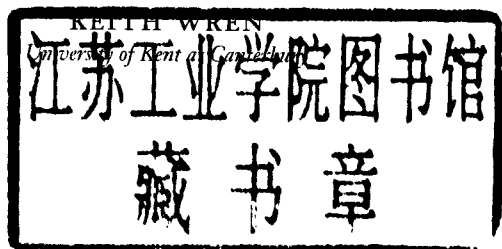 KEITH WREN
University of Kent at Canterbury
江苏工业学院图书馆
藏书章